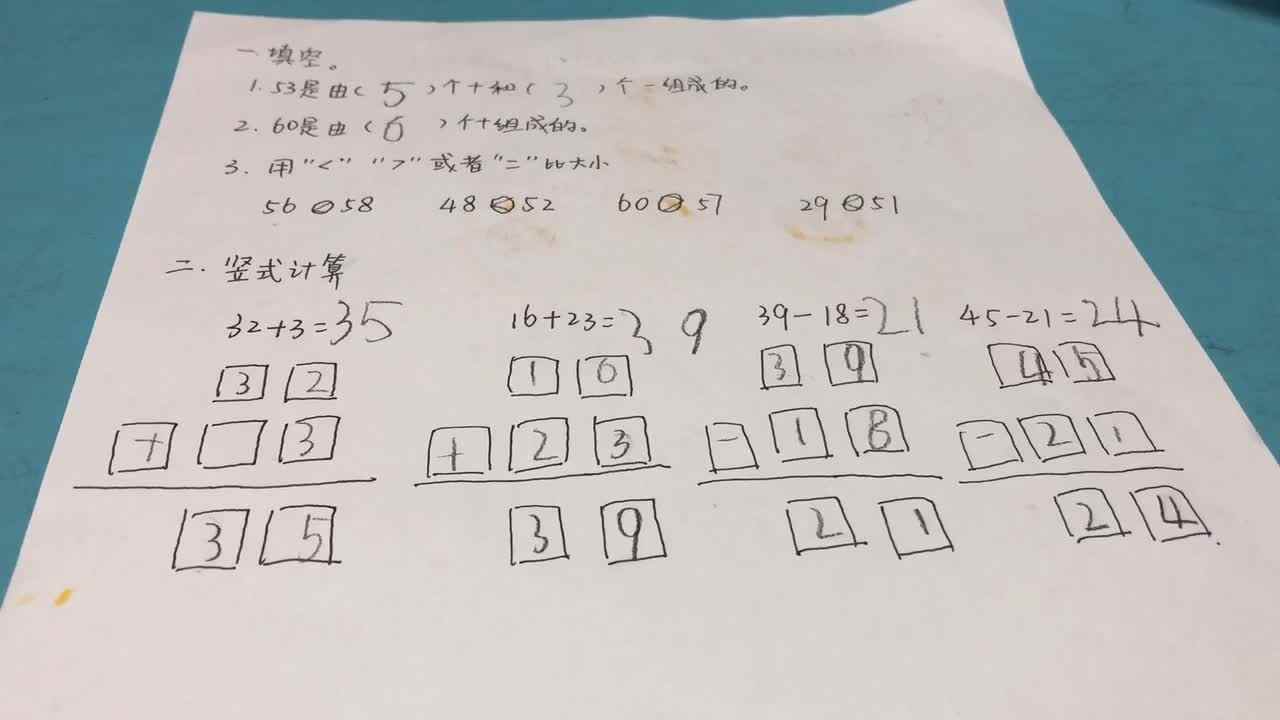 一.填空。
1.53是由(5)个十和(3)个一组成的。
2.60是由(6)个十组成的。
3.用"<" ">"或者"="比大小
56<58 48<52 60>57 29<51
二.竖式计算
32+3=35 16+23=39 39-18=21 45-21=24
3 2 1 6 3 9 4 5
+ 3 + 2 3 - 1 8 - 2 1
3 5 3 9 2 1 2 4